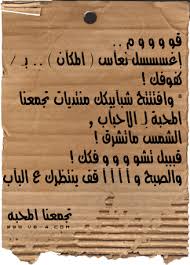 قوووم ..
إغسسسل نعاس ( المكان ) .. بـ /
كفوفك !
* وافتتتح شبابيكك منتديات تجمعنا
المحبة لـ الأحباب ,
الشمس ماتشرق !
قبيل تشوووفك !
والصبح وآآآقف ينتظرك ع الباب
تجمعنا المحبه
WWW.V8-A.COM